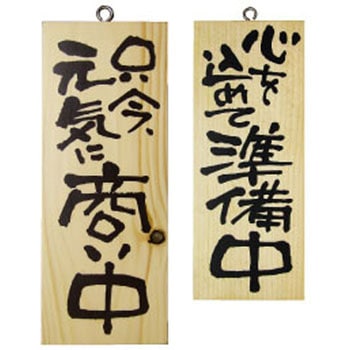 只今、
元気に
商い中
心を
込めて
準備中